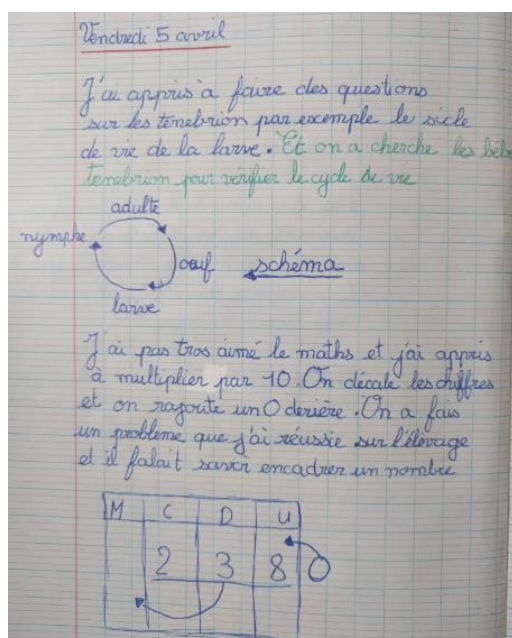 Vendredi 5 avril
J'ai appris à faire des questions
sur les ténebrion par excemple le sicle
de vie de la larve. Et on a cherche les bébé
tenebrion pour vérifier le cycle de vie
adulte
nymphe
oeuf
schéma
larve
J'ai pas tros aimé le maths et j'ai appris
à multiplier par 10. On décale les chiffres
et on rajoute un 0 derière. On a fais
un problème que j'ai réussie sur l'élevage
et il falait savoir encadrer un nombre
M C D U
2 3 8 0